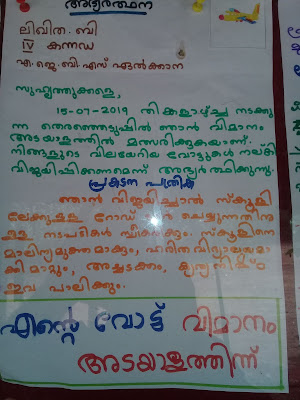 അഭ്യർത്ഥന
ലിവിത. ബി
IV കന്നഡ
എ.ജെ.ബി.എസ് ഏൽക്കാന
സുഹൃത്തുക്കളെ,
15-07-2019 തിങ്കളാഴ്ച്ച നടക്കു
ന്ന തെരഞ്ഞെടുപ്പിൽ ഞാൻ വിമാനം
അടയാളത്തിൽ മത്സരിക്കുകയാണ്.
നിങ്ങളുടെ വിലയേറിയ വോട്ടുകൾ നല്കി
വിജയിപ്പിക്കണമെന്ന് അഭ്യർത്ഥിക്കുന്നു.
പ്രകടന പത്രിക
ഞാൻ വിജയിച്ചാൽ സ്കൂളി
ലേക്കുള്ള റോഡ് ടാർ ചെയ്യുന്നതിനു
ള്ള നടപടികൾ സ്വീകരിക്കും. സ്കൂളിനെ
മാലിന്യമുക്തമാക്കും, ഹരിത വിദ്യാലയമാ
ക്കി മാറ്റും, അച്ചടക്കം, കൃത്യനിഷ്ഠ
ഇവ പാലിക്കും.
എന്റെ വോട്ട് വിമാനം
അടയാളത്തിന്